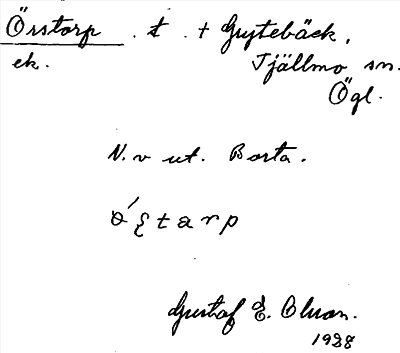 Örstorp t. + Grytebäck,
ek. Tjällmo sn.
Ögl.
N. v ut. Borta.
Gustaf E. Olson.
1928